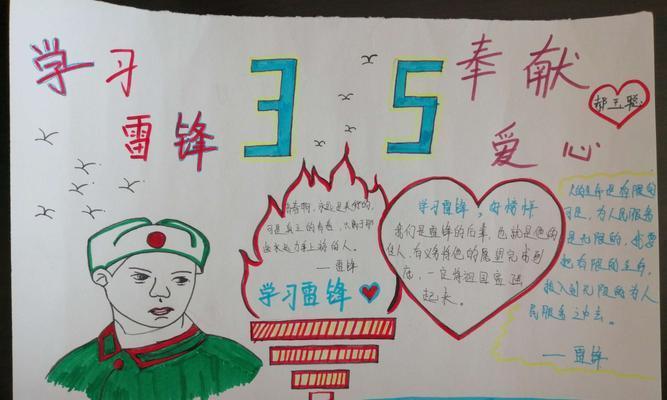 学习
雷锋
3 5
奉献
爱心
青春啊,永远是美好的,
可是真正的青春,只属于那
些永远力争上游的人。
——雷锋
学习雷锋
学习雷锋,好榜样
我们是雷锋的后辈,也就是他的
佳人,有义务将他的愿望完成到
底,一定将祖国富强
起来。
人的生命是有限的
可是,为人民服务
是无限的,我要
把有限的生命,
投入到无限的为人
民服务之中去。
——雷锋